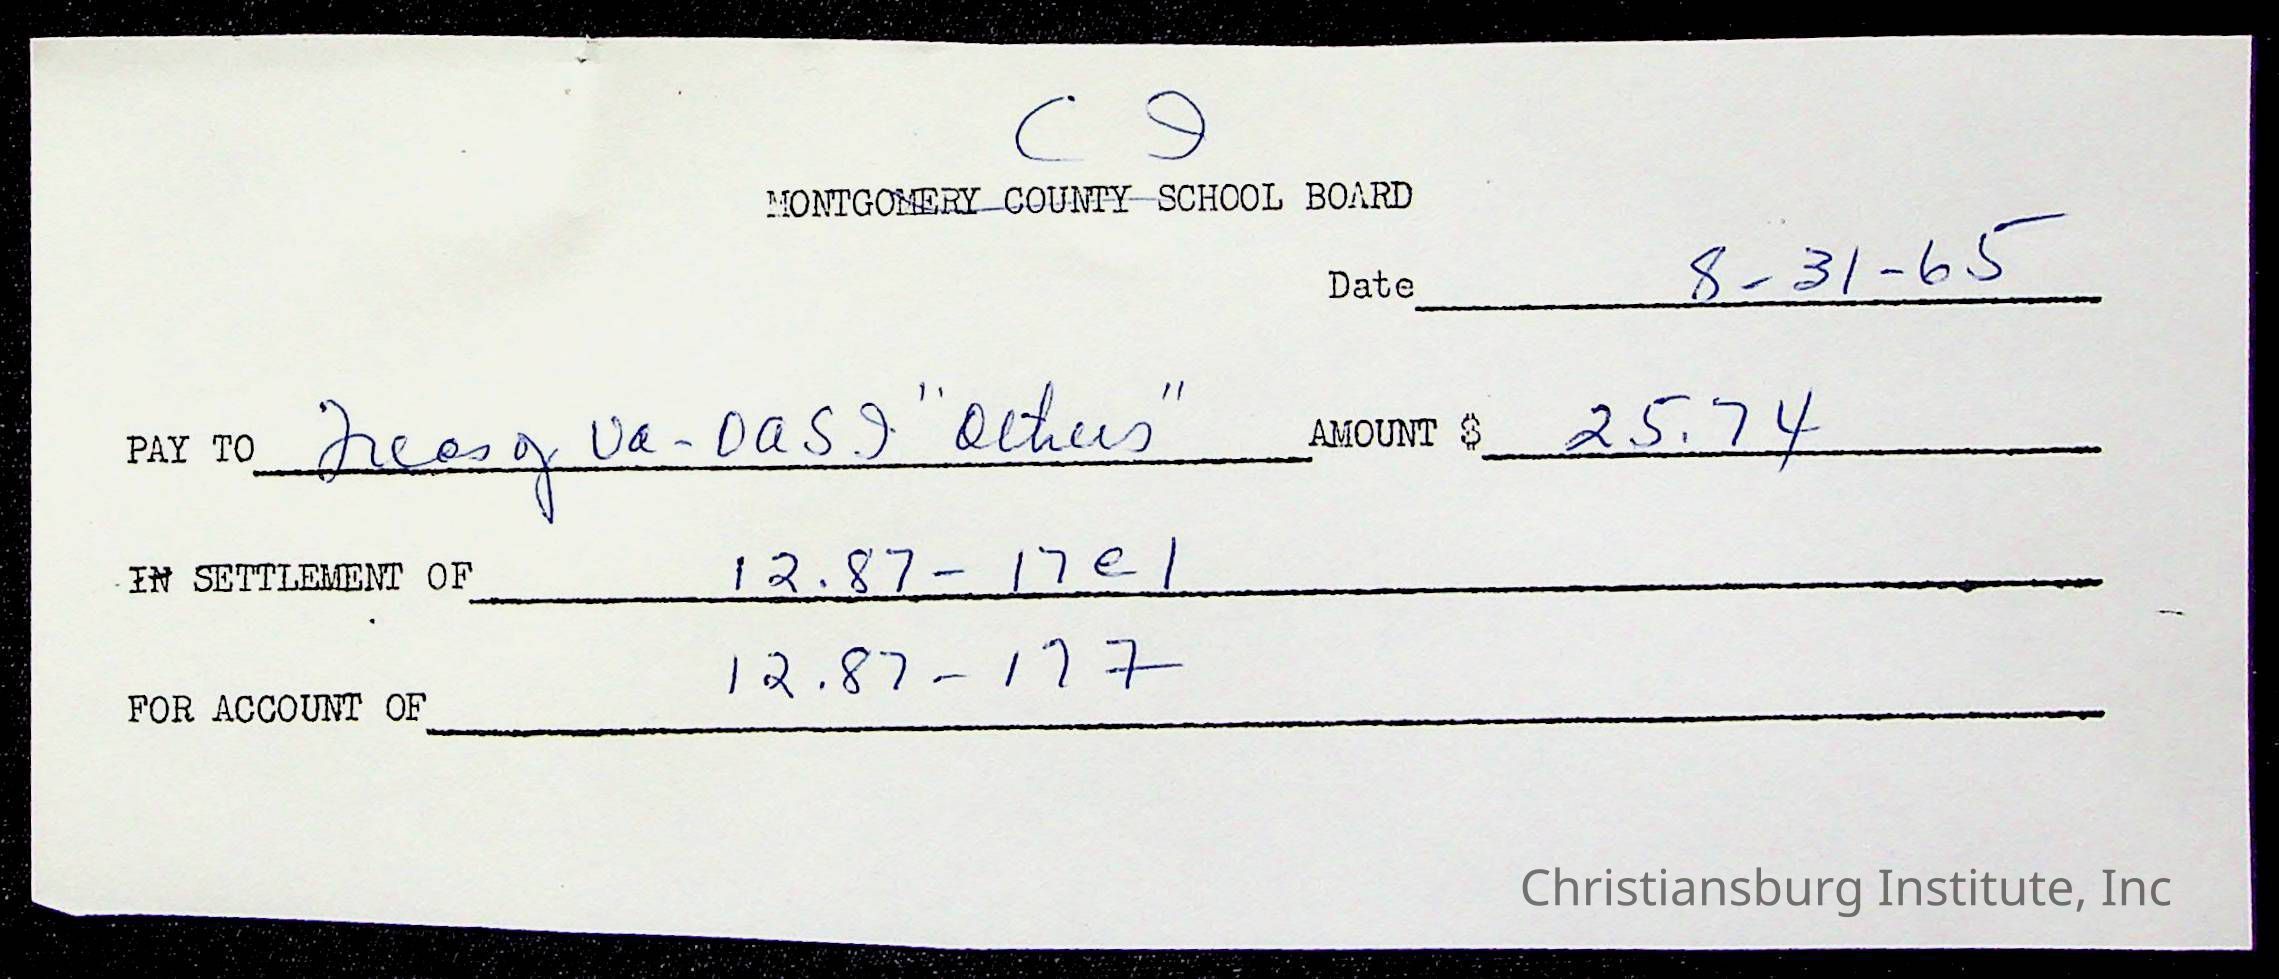 C I
MONTGOMERY COUNTY SCHOOL BOARD
Date 8-31-65
PAY TO Treas of Va - OASI "Others" AMOUNT $ 25.74
IN SETTLEMENT OF 12.87 - 17e1
12.87 - 177
FOR ACCOUNT OF
Christiansburg Institute, Inc